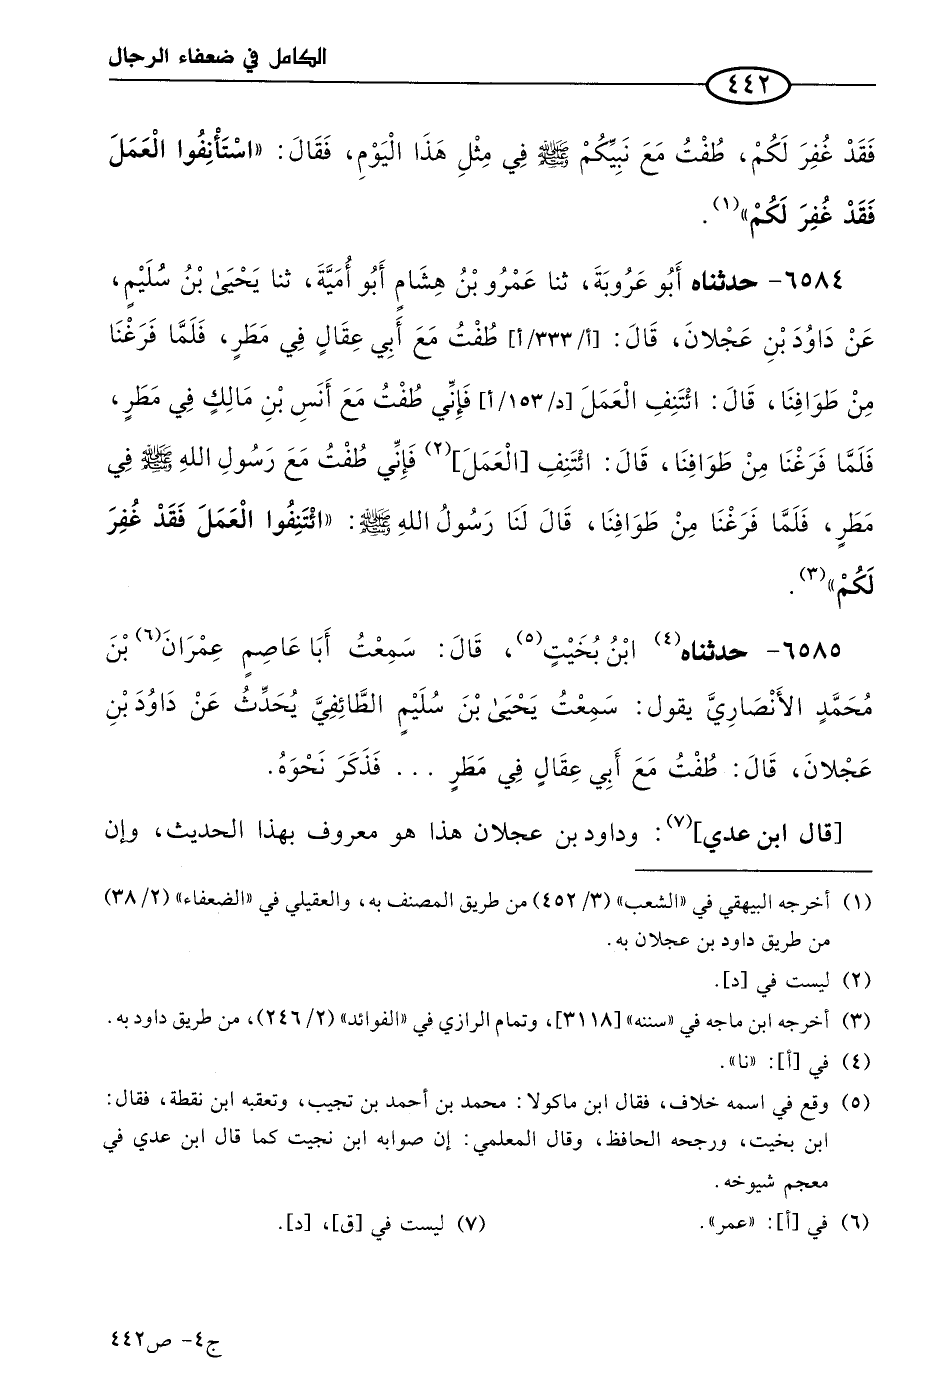 الكامل في ضعفاء الرجال
٤٤٢
فَقَدْ غُفِرَ لَكُمْ، طُفْتُ مَعَ نَبِيِّكُمْ ﷺ فِي مِثْلِ هَذَا الْيَوْمِ، فَقَالَ: «اسْتَأْنِفُوا الْعَمَلَ
فَقَدْ غُفِرَ لَكُمْ»(١).
٦٥٨٤- حدثناه أَبُو عَرُوبَةَ، ثنا عَمْرُو بْنُ هِشَامٍ أَبُو أُمَيَّةَ، ثنا يَحْيَىٰ بْنُ سُلَيْمٍ،
عَنْ دَاوُدَ بْنِ عَجْلانَ، قَالَ: [أ/٣٣٣/أ] طُفْتُ مَعَ أَبِي عِقَالٍ فِي مَطَرٍ، فَلَمَّا فَرَغْنَا
مِنْ طَوَافِنَا، قَالَ: ائْتَنِفِ الْعَمَلَ [د/١٥٣/أ] فَإِنِّي طُفْتُ مَعَ أَنَسِ بْنِ مَالِكٍ فِي مَطَرٍ،
فَلَمَّا فَرَغْنَا مِنْ طَوَافِنَا، قَالَ: ائْتَنِفِ [الْعَمَلَ](٢) فَإِنِّي طُفْتُ مَعَ رَسُولِ اللهِ ﷺ فِي
مَطَرٍ، فَلَمَّا فَرَغْنَا مِنْ طَوَافِنَا، قَالَ لَنَا رَسُولُ اللهِ ﷺ: «ائْتَنِفُوا الْعَمَلَ فَقَدْ غُفِرَ
لَكُمْ»(٣).
٦٥٨٥- حدثناه(٤) ابْنُ بُخَيْتٍ(٥)، قَالَ: سَمِعْتُ أَبَا عَاصِمٍ عِمْرَانَ(٦) بْنَ
مُحَمَّدٍ الأَنْصَارِيَّ يقول: سَمِعْتُ يَحْيَىٰ بْنَ سُلَيْمٍ الطَّائِفِيَّ يُحَدِّثُ عَنْ دَاوُدَ بْنِ
عَجْلانَ، قَالَ: طُفْتُ مَعَ أَبِي عِقَالٍ فِي مَطَرٍ ... فَذَكَرَ نَحْوَهُ.
[قال ابن عدي](٧): وداود بن عجلان هذا هو معروف بهذا الحديث، وإن
(١) أخرجه البيهقي في «الشعب» (٣/ ٤٥٢) من طريق المصنف به، والعقيلي في «الضعفاء» (٢/ ٣٨)
من طريق داود بن عجلان به.
(٢) ليست في [د].
(٣) أخرجه ابن ماجه في «سننه» [٣١١٨]، وتمام الرازي في «الفوائد» (٢/ ٢٤٦)، من طريق داود به.
(٤) في [أ]: «نا».
(٥) وقع في اسمه خلاف، فقال ابن ماكولا: محمد بن أحمد بن تجيب، وتعقبه ابن نقطة، فقال:
ابن بخيت، ورجحه الحافظ، وقال المعلمي: إن صوابه ابن نجيت كما قال ابن عدي في
معجم شيوخه.
(٦) في [أ]: «عمر». (٧) ليست في [ق]، [د].
ج٤- ص٤٤٢